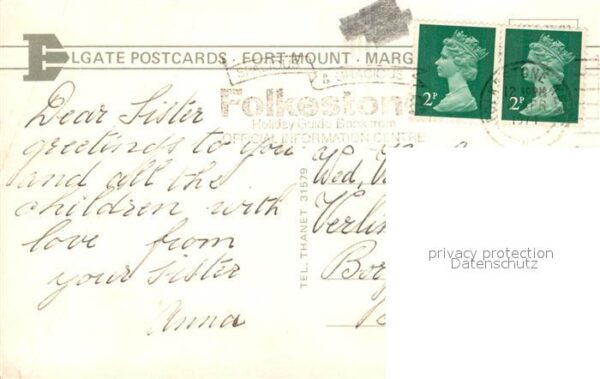 ELGATE POSTCARDS · FORT MOUNT · MARG
& GRACIOUS
Folkestone
Holiday Guide Book from
OFFICIAL INFORMATION CENTRE
2P
2P
Dear Sister
greetings to you
and all the
children with
love from
your Sister
Anna
TEL. THANET 31579
Wed,
Verlin
Bor
privacy protection
Datenschutz